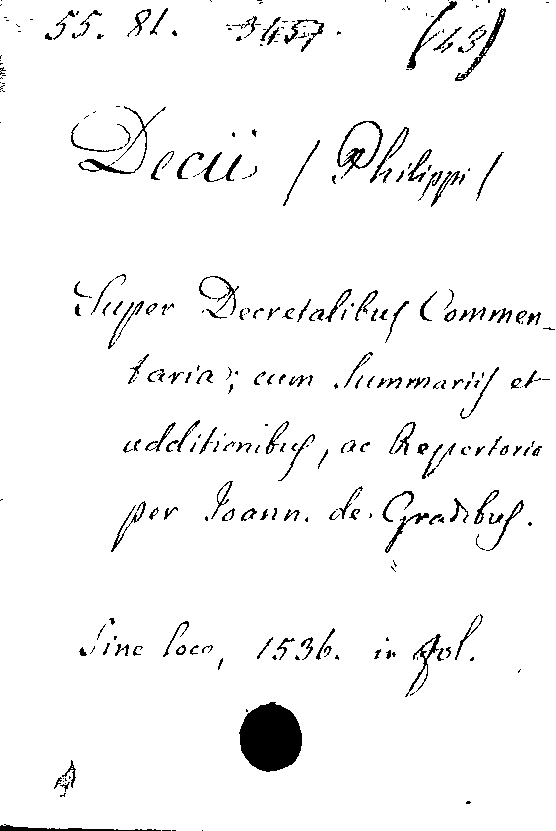 55. 81. (23)
Decii / Philippi /
Super Decretalibus Commen-
taria; cum Summariis et
additionibus, ac Repertorio
per Joann. de Gradibus.
Sine loco, 1536. in fol.